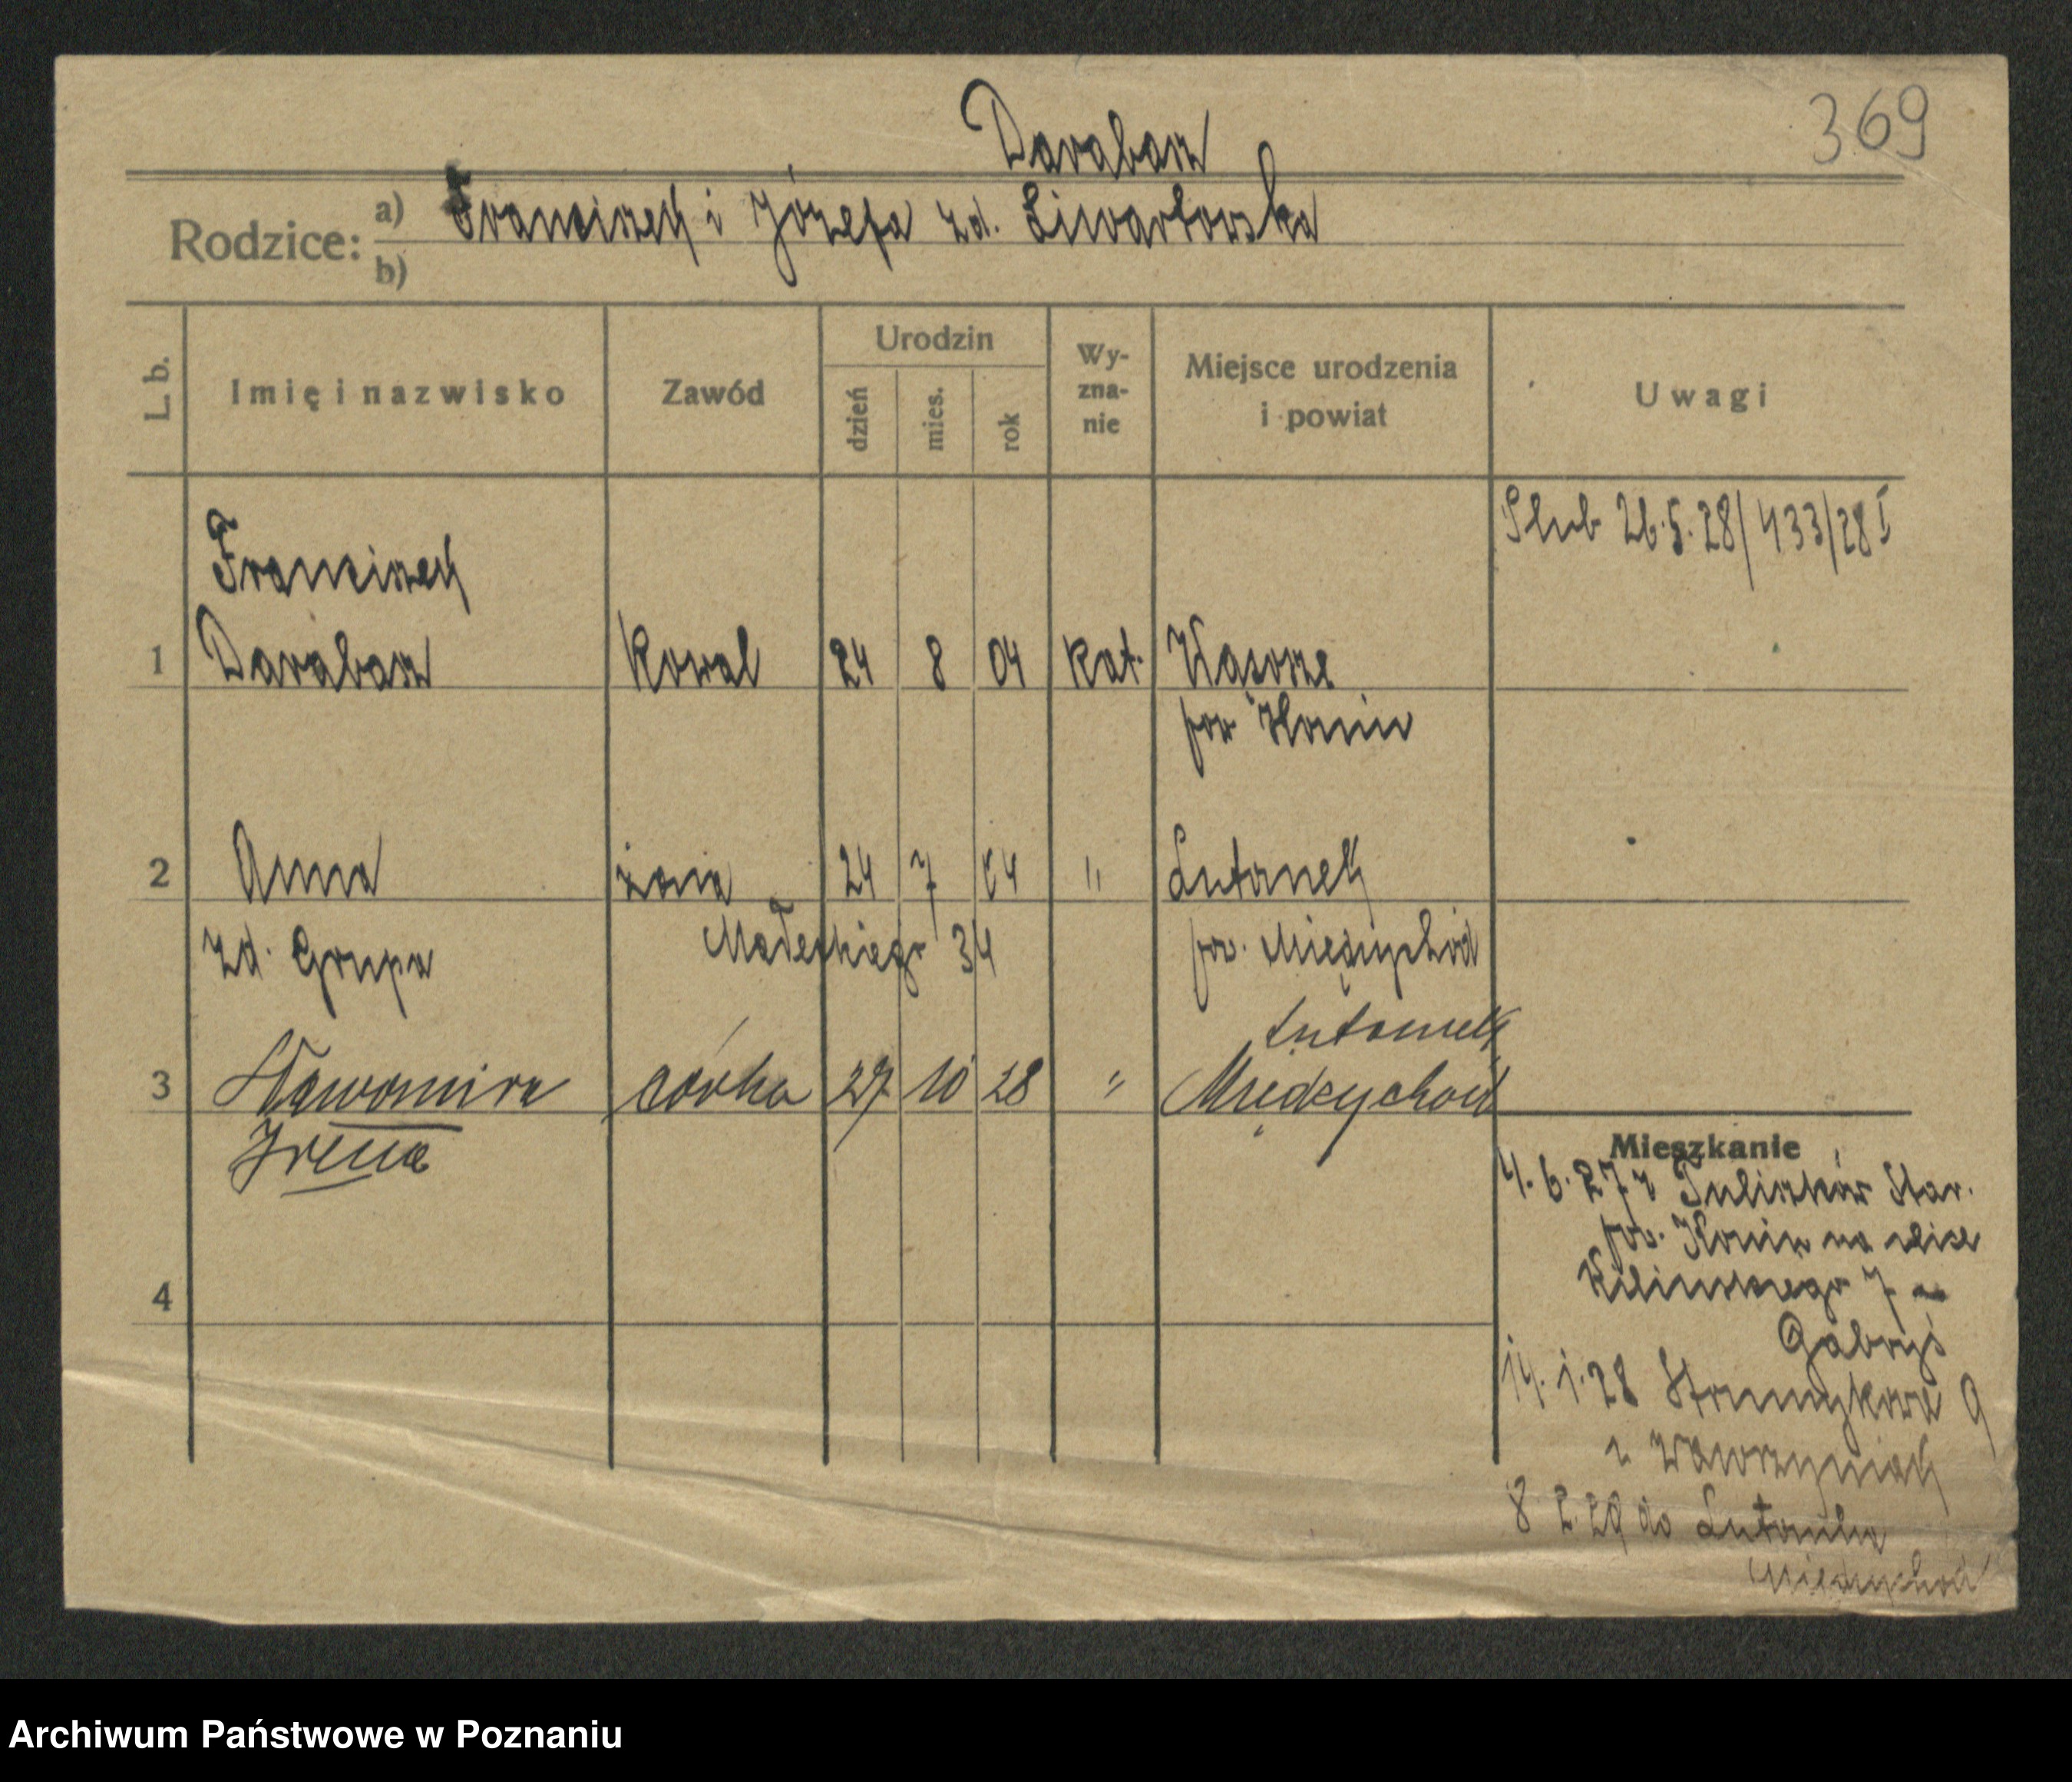 369
Darabasz
Rodzice: a) Franciszek i Józefa zd. Liwartowska
b)
L. b.
Imię i nazwisko
Zawód
Urodzin
dzień
mies.
rok
Wy-
zna-
nie
Miejsce urodzenia
i powiat
Uwagi
Ślub 26.5.28/433/28 I
Franciszek
1 Darabasz Kowal 24 8 04 kat.
pow Konin
2 Anna żona 24 7 04 " Lutomek
zd. Grupa Małeckiego 34 pow. Międzychód
Lutomek
3 Sławomira córka 27 10 28 " Międzychód
Irena
Mieszkanie
4.6.27 z Tuliszków Star.
pow. Konin na ulice
Kilińskiego 7
4
Gabryś
14.1.28 Strumykowa 9
z Wawrzyniak
8 2.29 do Lutomka
Międzychód
Archiwum Państwowe w Poznaniu